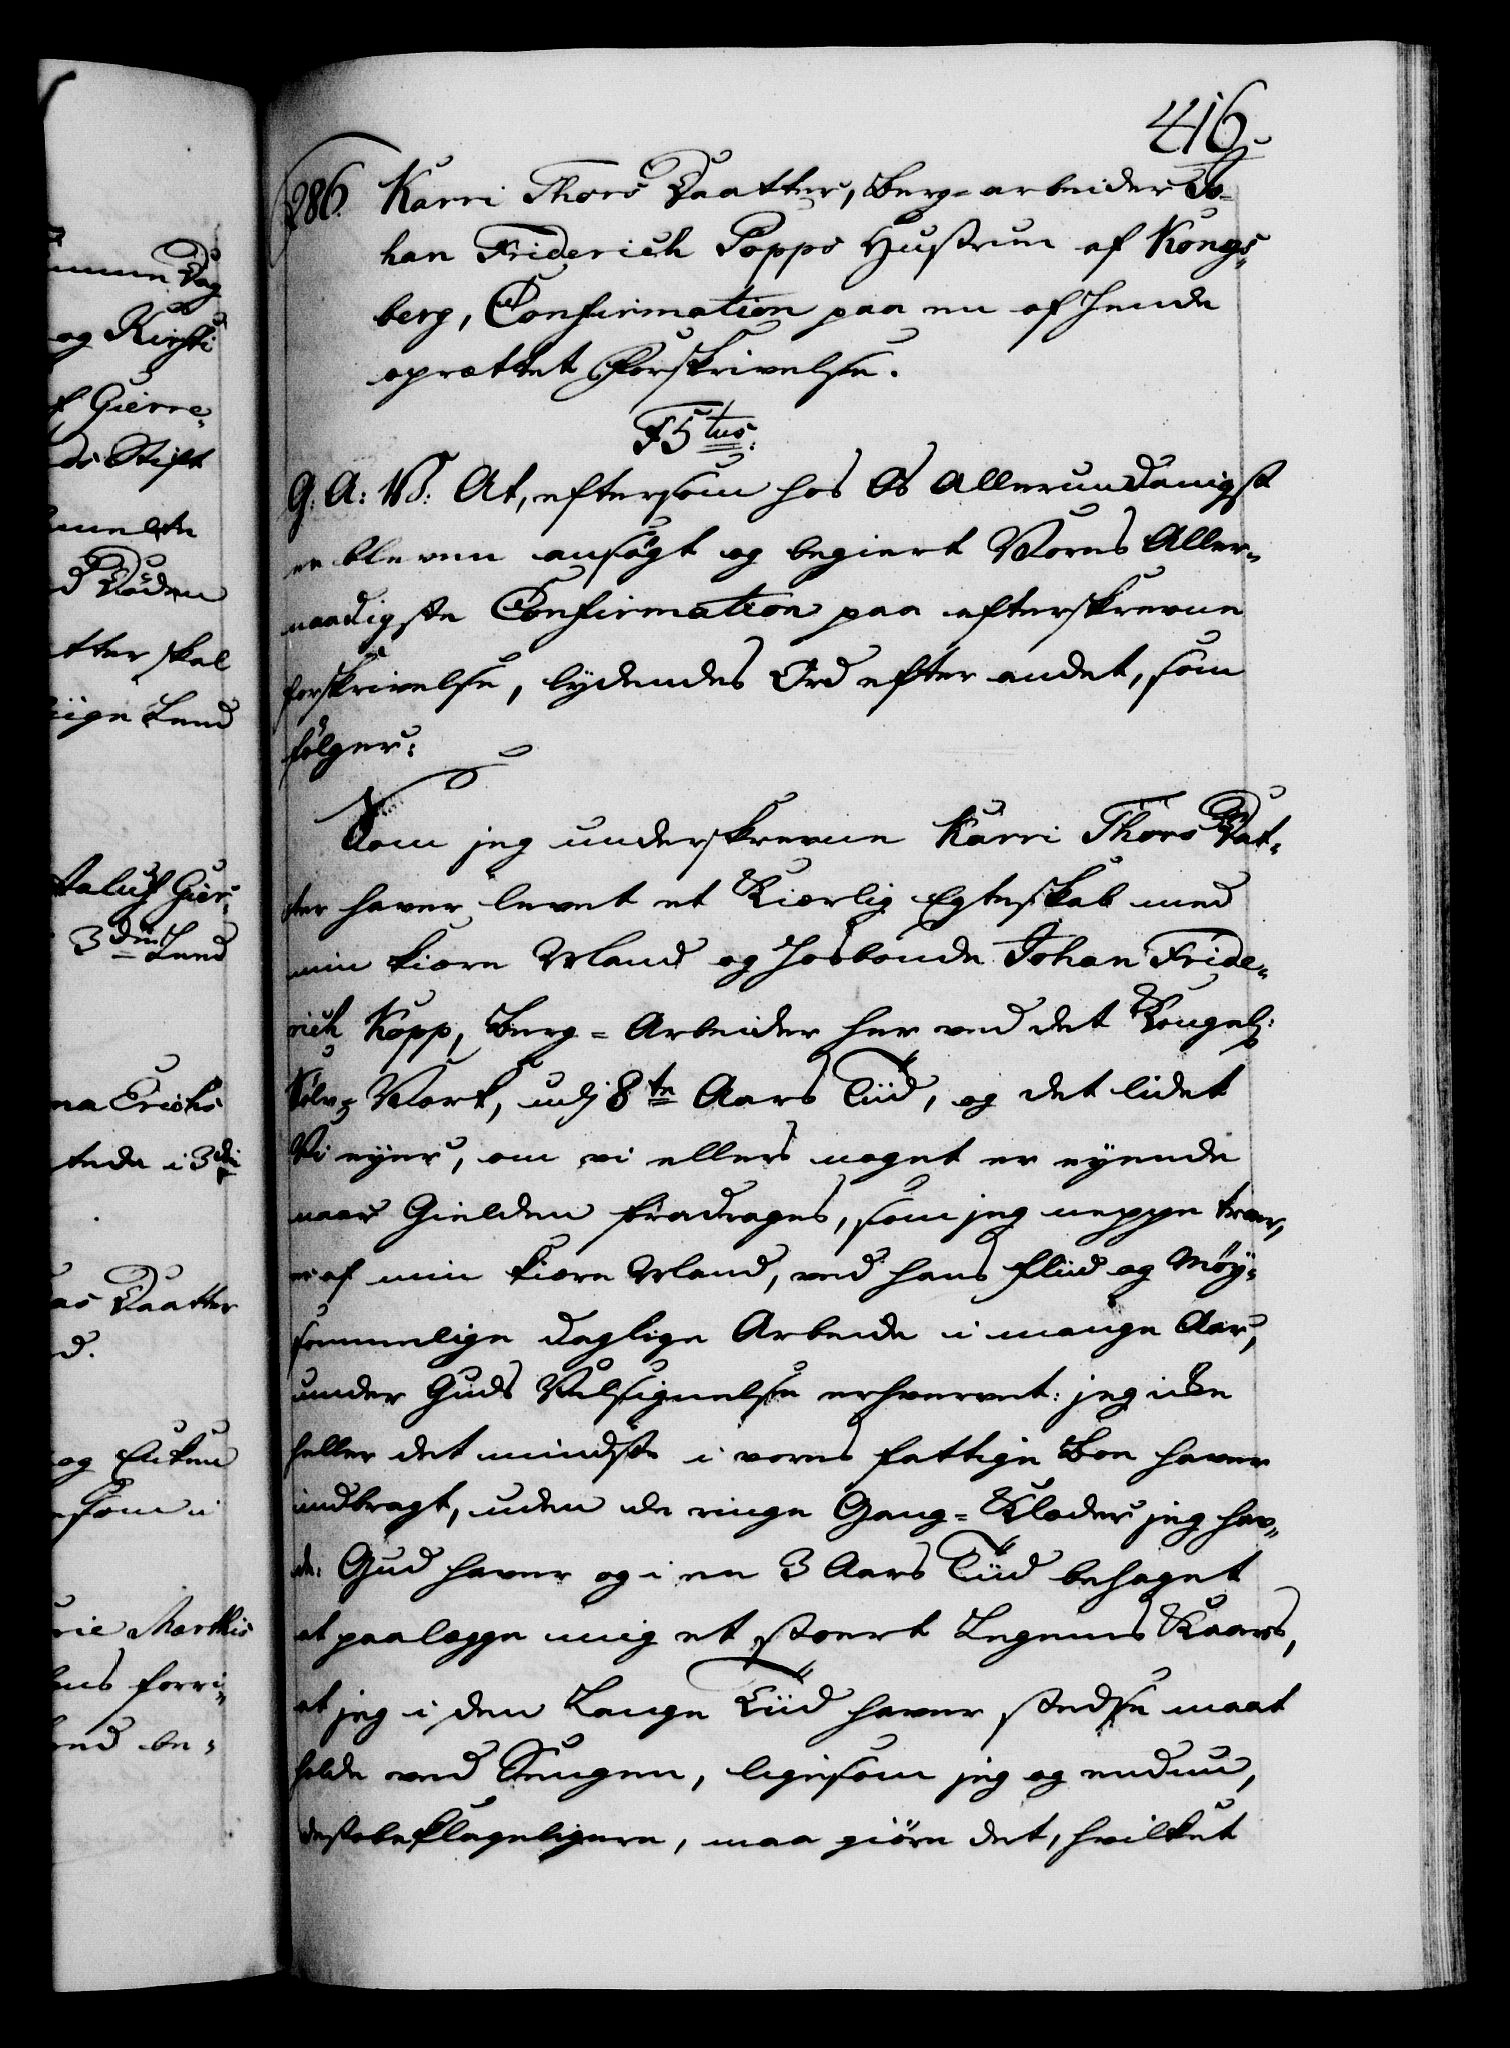 416.
286. Karri Thors Daatter, Berg-arbeider Jo-
han Friderich Popps Hustrue af Kongs-
berg, Confirmation paa en af hende
oprættet Forskrivelse.
F5tus:
G. A: V: At, eftersom hos Os Allerundanigst
er bleven ansøgt og begiert Vores Aller-
naadigste Confirmation paa efterskrevne
forskrivelse, lydendes Ord efter andet, som
følger:
Som jeg underskrevne Karri Thors Dat-
ter haver levet et Kierlig Egteskab med
min kiære Mand og Hosbonde Johan Fride-
rich Kopp, Berg-Arbeider her ved det Kongel:
Sølv-Værk, udj 8te Aars Tiid, og det lidet
Vi eyer, om vi ellers noget er eyende
naar Gielden fradrages, som jeg neppe troer,
er af min kiære Mand, ved hans fliid og Møy-
sommelige daglige Arbeide i mange Aar,
under Guds Velsignelse erhvervet: jeg icke
heller det mindste i vores fattige Boe haver
indbragt, uden de ringe Gang-Klæder jeg hav-
de: Gud haver og i en 3 Aars Tiid behaget
at paalegge mig et stoert Legems Kaars,
at jeg i den Lange Tiid haver stedse maat
holde ved Sengen, ligesom jeg og endnu,
destobeklageligere, maa giøre det, hvilket
Dag
og Kirsti
Gierre-
Stift
Døden
atter skal
Leed
Gier-
3die Leed
Erichs
i 3die
Daatter
og Enken
som i
Marthis
forri-
be-